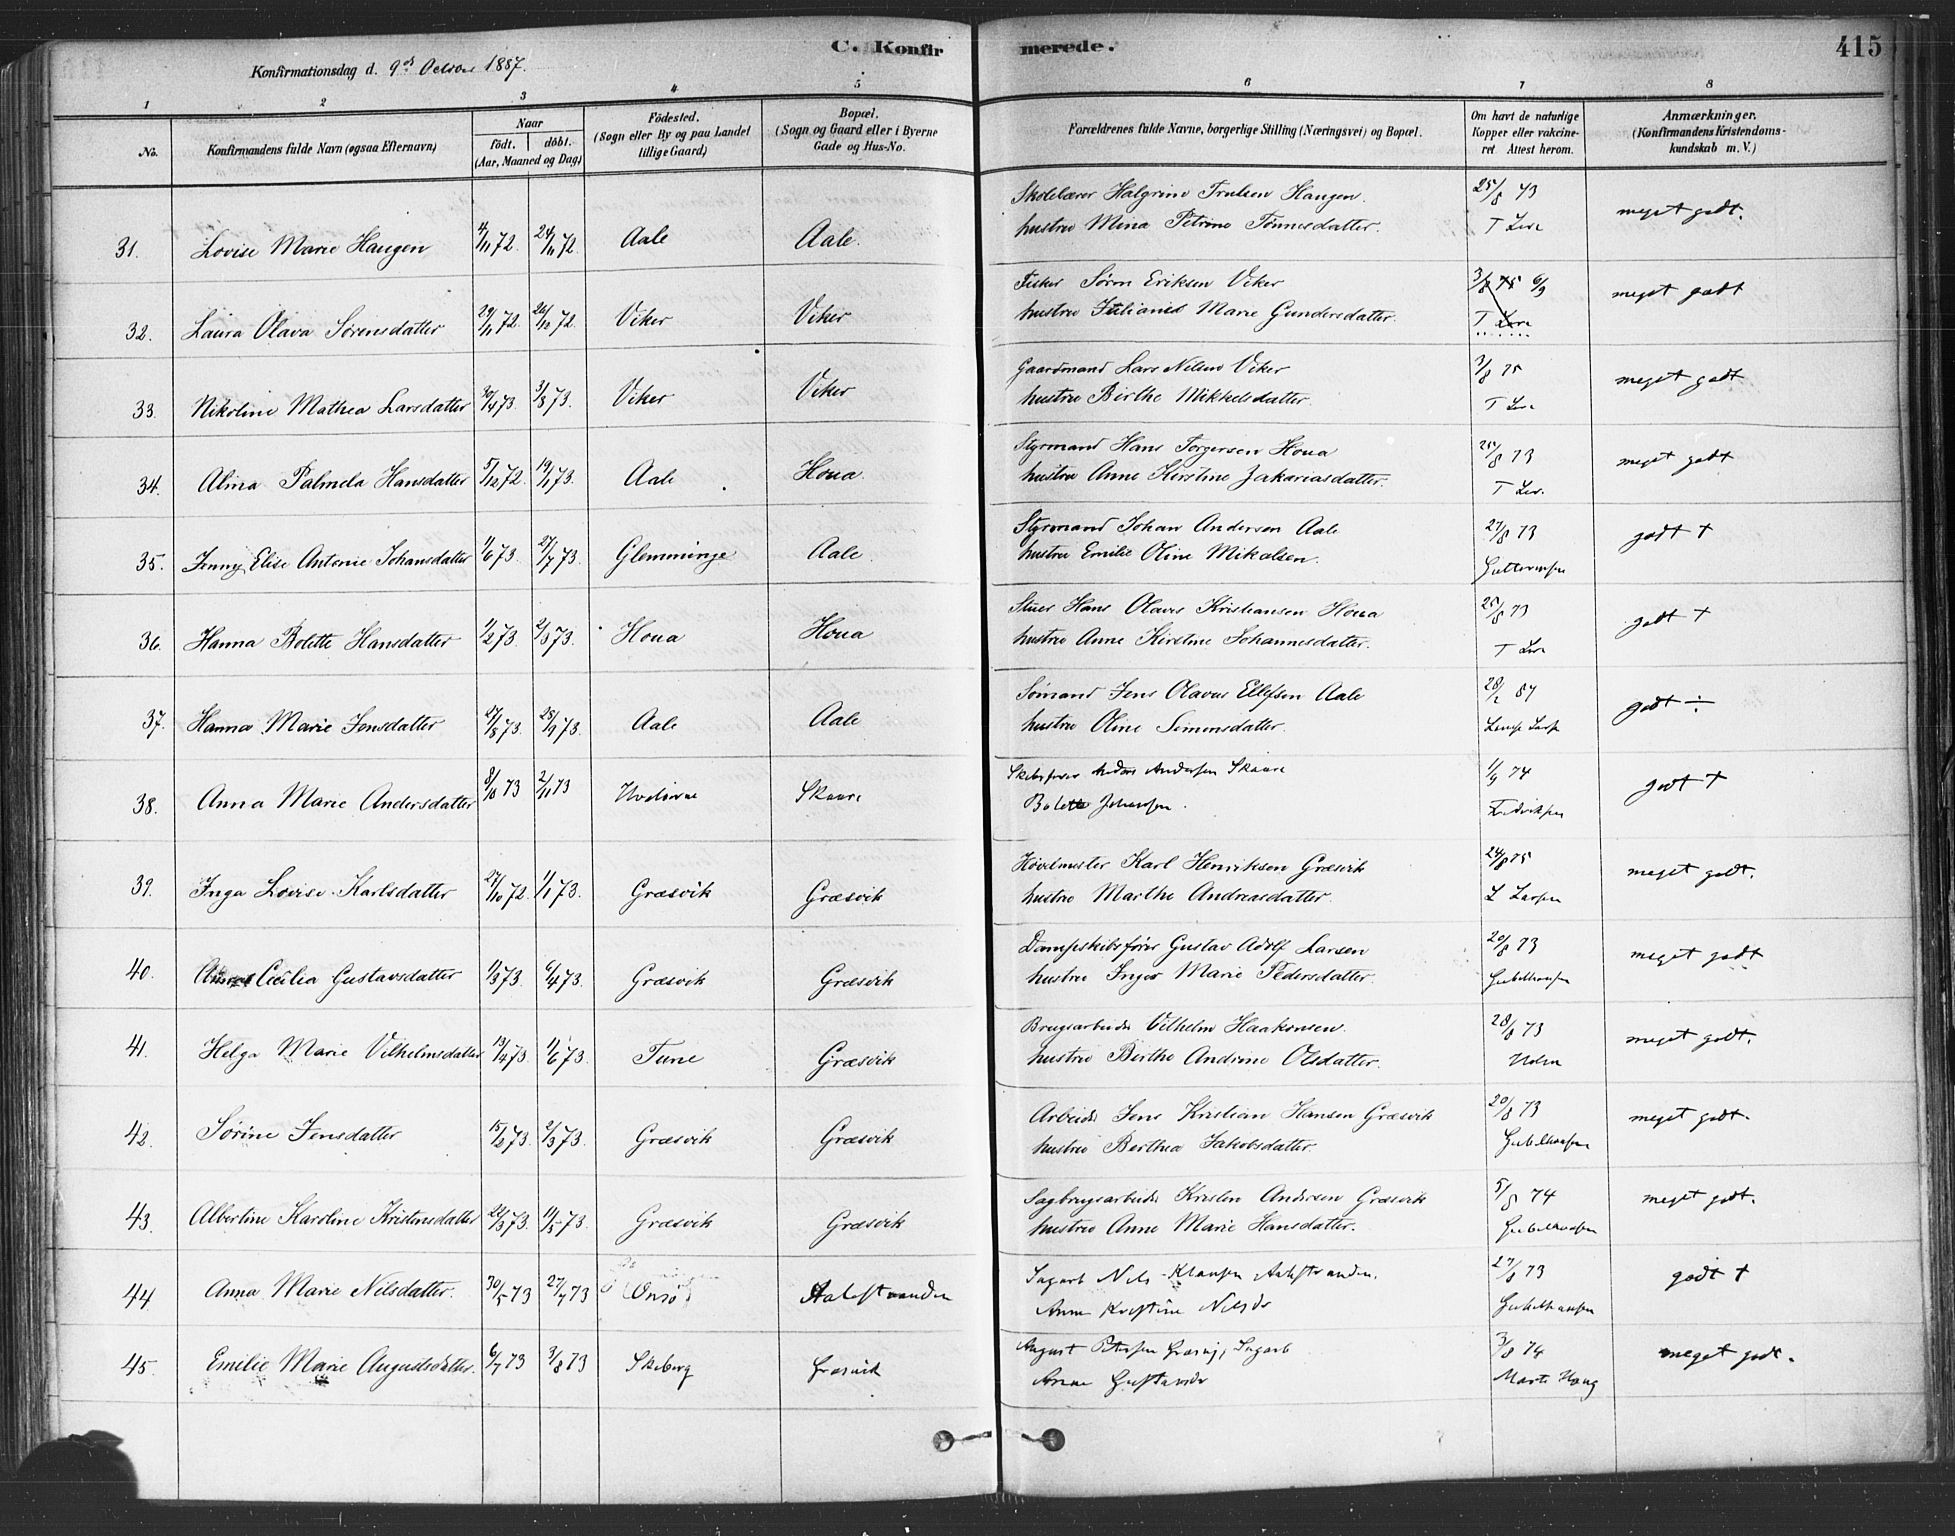 C. Konfir merede. 415
Konfirmationsdag d. 9de October 1887.
1 2 3 4 5 6 7 8
No. Konfirmandens fulde Navn (ogsaa Efternavn) Naar født. døbt. (Aar, Maaned og Dag) Fødested. (Sogn eller By og paa Landet tillige Gaard) Bopæl. (Sogn og Gaard eller i Byerne Gade og Hus-No. Forældrenes fulde Navne, borgerlige Stilling (Næringsvei) og Bopæl. Om havt de naturlige Kopper eller vakcineret. Attest herom. Anmærkninger. (Konfirmandens Kristendomskundskab m. V.)
Skolelærer Halgrim Trulsen Haugen. 25/8 73 meget godt.
31. Lovise Marie Haugen 4/11 72. 24/11 72. Aale Aale. hustru Mina Petrine Tønnesdatter.
Fisker Søren Eriksen Viker 3/8 75 6/9 meget godt
32. Laura Olava Sørensdatter 29/11 72. 26/12 72. Viker Viker hustru Juliane Marie Gundersdatter.
Gaardmand Lars Nilsen Viker 3/8 75 meget godt
33. Nikoline Mathea Larsdatter 30/4 73. 3/8 73. Viker Viker hustru Birthe Mikkelsdatter.
Styrmand Hans Torgersen Houa 25/8 73 meget godt
34. Alma Palmela Hansdatter 5/12 72. 19/1 73. Aale Houa. hustru Anne Kirstine Zakariasdatter.
Styrmand Johan Andersen Aale 27/8 73 godt +
35. Jenny Elise Antonie Johansdatter 1/6 73. 27/7 73. Glemminge Aale. hustru Emilie Oline Mikalsen.
Stuer Hans Olaves Kristiansen Houa 25/8 73 godt +
36. Hanna Bolette Hansdatter 1/2 73. 2/3 73. Houa Houa hustru Anne Kirstine Johannesdatter.
Sømand Jens Olavus Ellefsen Aale 28/2 87 godt ÷
37. Hanna Marie Jensdatter 27/8 73. 28/9 73. Aale Aale hustru Oline Simensdatter.
Skibsfører Anders Andersen Skaare 1/9 74 godt +
38. Anna Marie Andersdatter 8/10 73 2/11 73 Skaare Bolette Johansen. Fredriksen
Høvelmester Karl Henriksen Græsvik 24/8 75 meget godt.
39. Inga Lovise Karlsdatter 27/10 72. 1/1 73. Græsvik Græsvik hustru Marthe Andreasdatter. L Larsen
Dampskibsfører Gustav Adolf Larsen 20/8 73 meget godt
40. Cecilia Gustavsdatter 1/3 73. 6/4 73. Græsvik Græsvik hustru Inger Marie Pedersdatter.
Brugsarbeider Vilhelm Haakensen. 28/8 73 meget godt.
41. Helga Marie Vilhelmsdatter 13/4 73. 1/6 73. Tune Græsvik hustru Birthe Andrine Olsdatter.
Arbeider Jens Kristian Hansen Græsvik 20/8 73 meget godt.
42. Sørine Jensdatter 15/2 73. 2/3 73. Græsvik Græsvik hustru Berthea Jakobsdatter.
Sagbrugsarbeider Kristen Andersen Græsvik 5/8 74 meget godt.
43. Albertine Karoline Kristensdatter 24/3 73. 11/5 73. Græsvik Græsvik hustru Anne Marie Hansdatter.
Sagarb Nils Klausen Aalestranden. 27/8 73 godt +
44 Anna Marie Nilsdatter. 30/5 73 27/7 73 Onsø Aalestranden Anne Kristine Nilsdr
August Petersen Græsvig, Sagarb 3/8 74 meget godt.
45. Emilie Marie Augustsdatter. 6/7 73 3/8 73 Skeberg Græsvik Anne Gustavsdr Marte Haug